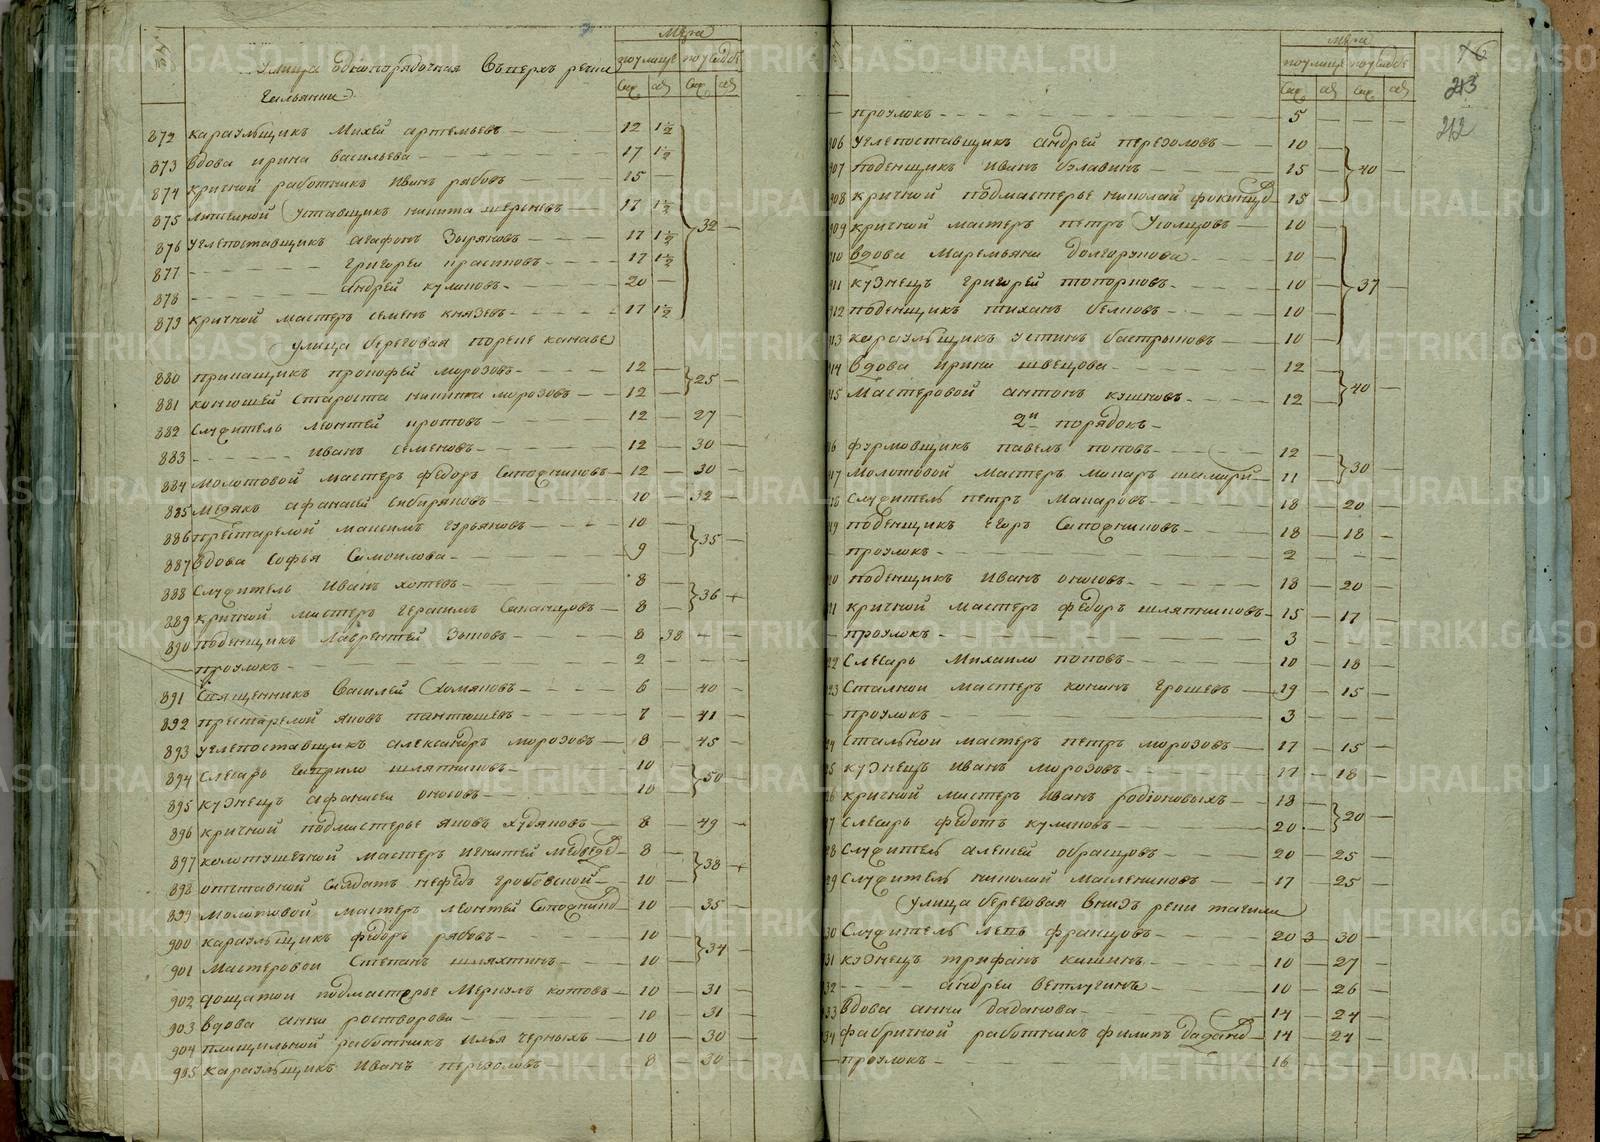 Мера
Улица однопорядочная Въверхъ речки
поулице поусадьбе
Гальянки
Саж. ар. Саж. ар.
872 караульщикъ Михей артемьевъ 12 1½
873 вдова ирина васильева 17 1½
874 кричной работникъ Иванъ рябовъ 15
875 уставщикъ никита 17 1½
876 углепоставщикъ агафонъ Зыряновъ 17 1½ 32
877 григорей красиковъ 17 1½
878 андрей куликовъ 20
879 кричной мастеръ семенъ князевъ 17 1½
улица береговая
880 прикащикъ прокофей морозовъ 12
25
881 конюшей староста никита морозовъ 12
882 служитель леонтей кротовъ 12 27
883 иванъ семеновъ 12 30
884 молотовой мастеръ федоръ Сапожниковъ 12 30
885 афанасей Сибиряковъ 10 32
886 престарелой максимъ Гурьяновъ 10
35
887 вдова Софья Самоилова 9
888 служитель Иванъ хотевъ 8
36
889 кричной мастеръ герасимъ 8
890 поденщикъ Лаврентей Зыковъ 8 38
проулокъ 2
891 Священникъ Василей Хомяковъ 6 40
892 престарелой яковъ пантюшевъ 7 41
893 углепоставщикъ александръ морозовъ 8 45
894 слесарь гаврило шляпниковъ 10
50
895 кузнецъ афанасей оносовъ 10
896 кричной подмастерье яковъ худяковъ 8 49
897 колотушечной мастеръ игнатей медведе 8
38
898 отставной Салдатъ нефедъ гробовской 10
899 молотовой мастеръ леонтей Сапожнико 10 35
900 караульщикъ федоръ рябовъ 10
34
901 мастеровой Степанъ шляхтинъ 10
902 дощатой подмастерье меркулъ котовъ 10 31
903 вдова анна растворова 10 31
904 плющильной работникъ илья черныхъ 10 30
905 караульщикъ Иванъ перезоловъ 8 30
Мера
поулице поусадьбе
76
213
212
Саж. ар. Саж. ар.
проулокъ 5
906 углепоставщикъ андрей перезоловъ 10
907 поденщикъ Иванъ булавинъ 15 40
908 кричной подмастерье николай 15
909 кричной мастеръ петръ Уголцовъ 10
910 вдова Маремьяна Долгорукова 10
911 кузнецъ григорей топорковъ 10 37
912 поденщикъ тиханъ беловъ 10
913 караульщикъ устинъ бастрыковъ 10
914 вдова ирина швецова 12
40
915 Мастеровой антонъ кушковъ 12
2й порядокъ
916 формовщикъ павелъ поповъ 12
30
917 молотовой мастеръ макаръ 11
918 служитель петръ макаровъ 18 20
919 поденщикъ егоръ Сапожниковъ 18 18
проулокъ 2
920 поденщикъ Иванъ оносовъ 18 20
921 кричной мастеръ федоръ шляпниковъ 15 17
проулокъ 3
922 слесарь Михаило поповъ 10 18
923 Сталной мастеръ кононъ Грошевъ 19 15
проулокъ 3
924 Стальной мастеръ петръ морозовъ 17 15
925 кузнецъ Иванъ морозовъ 17 18
926 кричной мастеръ Иванъ родионовыхъ 18
20
927 слесарь федотъ куликовъ 20
928 Служитель алексей образцовъ 20 25
929 Служитель николай маслениковъ 17 25
Улица береговая внизъ реки тагила
930 Служитель левъ францовъ 20 3 30
931 кузнецъ трифанъ кашинъ 10 27
932 андрей ветлугинъ 10 26
933 вдова анна дадонова 14 24
934 фабричной работникъ филипъ дадоно 14 24
проулокъ 16
METRIKI.GASO-URAL.RU